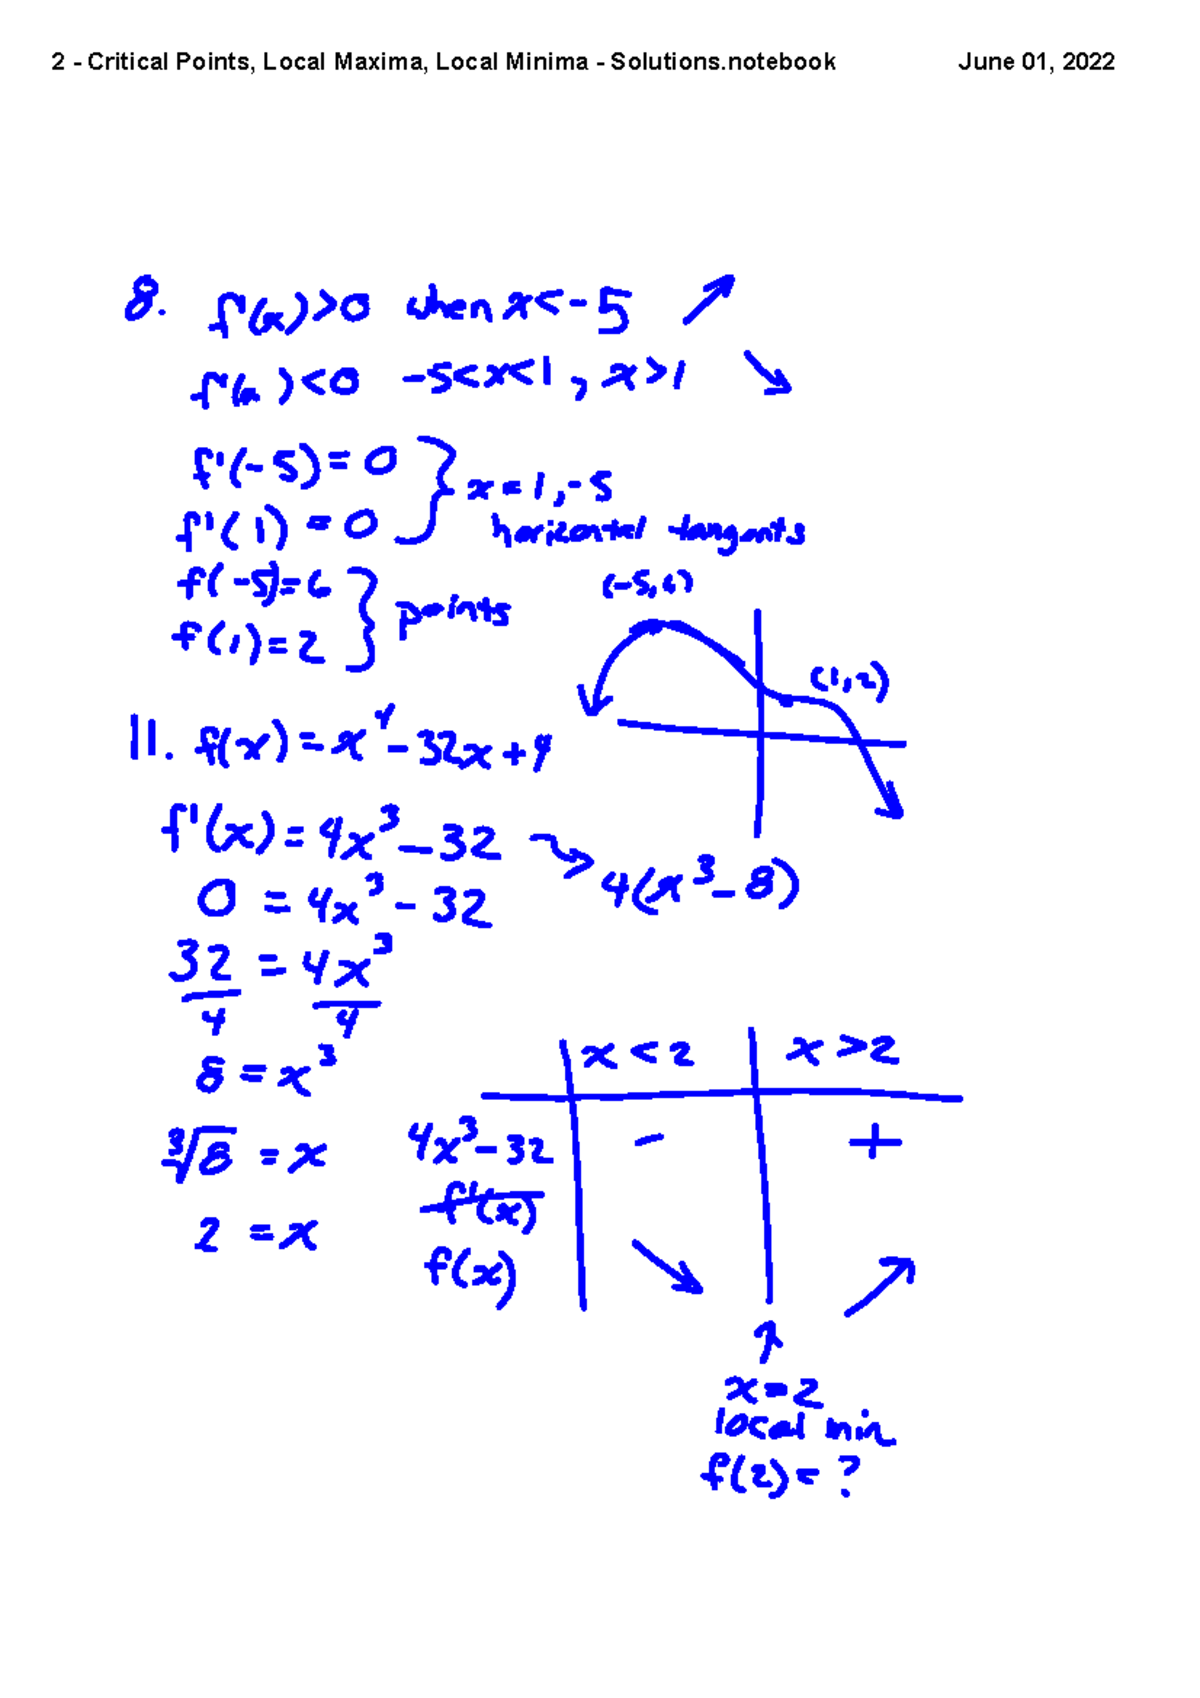 2 - Critical Points, Local Maxima, Local Minima - Solutions.notebook June 01, 2022
8. f'(x)>0 when x<-5
f'(x)<0 -5<x<1, x>1
f'(-5)=0
x=1,-5
f'(1)=0
horizontal tangents
f(-5)=6
points
f(1)=2
(-5,6)
(1,2)
11. f(x)=x⁴-32x+4
f'(x)=4x³-32
4(x³-8)
0=4x³-32
32/4=4x³/4
8=x³
³√8=x
2=x
x<2 x>2
4x³-32 - +
f'(x)
f(x)
x=2
local min
f(2)=?